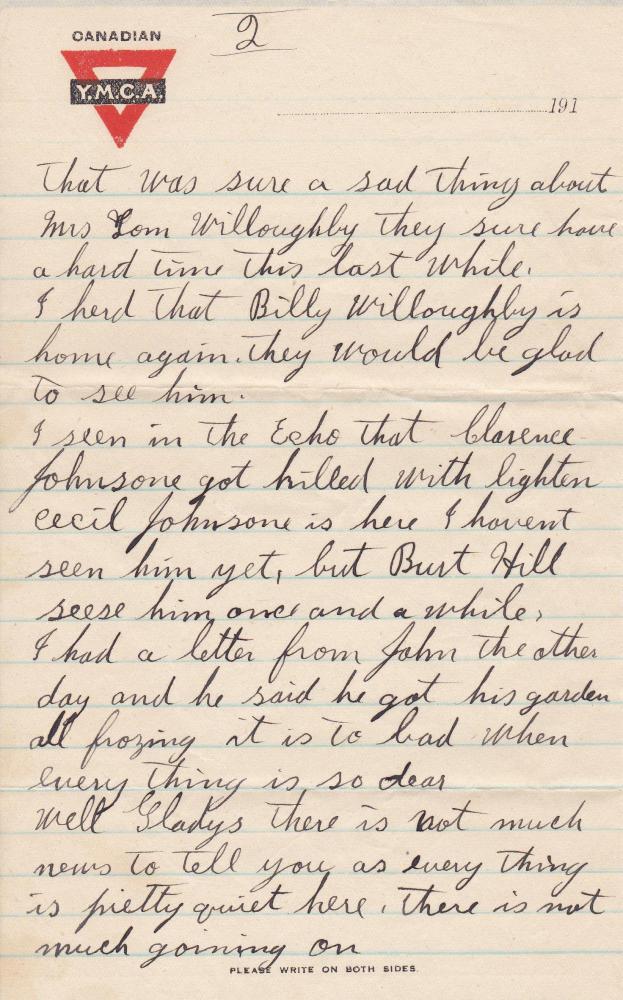 CANADIAN
Y.M.C.A.
2
191
That was sure a sad thing about
Mrs Tom Willoughby they sure have
a hard time this last while.
I herd that Billy Willoughby is
home again. they would be glad
to see him.
I seen in the Echo that Clarence
Johnsone got killed with lighten
cecil Johnsone is here I havent
seen him yet, but Burt Hill
seese him once and a while,
I had a letter from John the other
day and he said he got his garden
all frozing it is to bad when
every thing is so dear
Well Gladys there is not much
news to tell you as every thing
is pretty quiet here, there is not
much goining on
PLEASE WRITE ON BOTH SIDES.